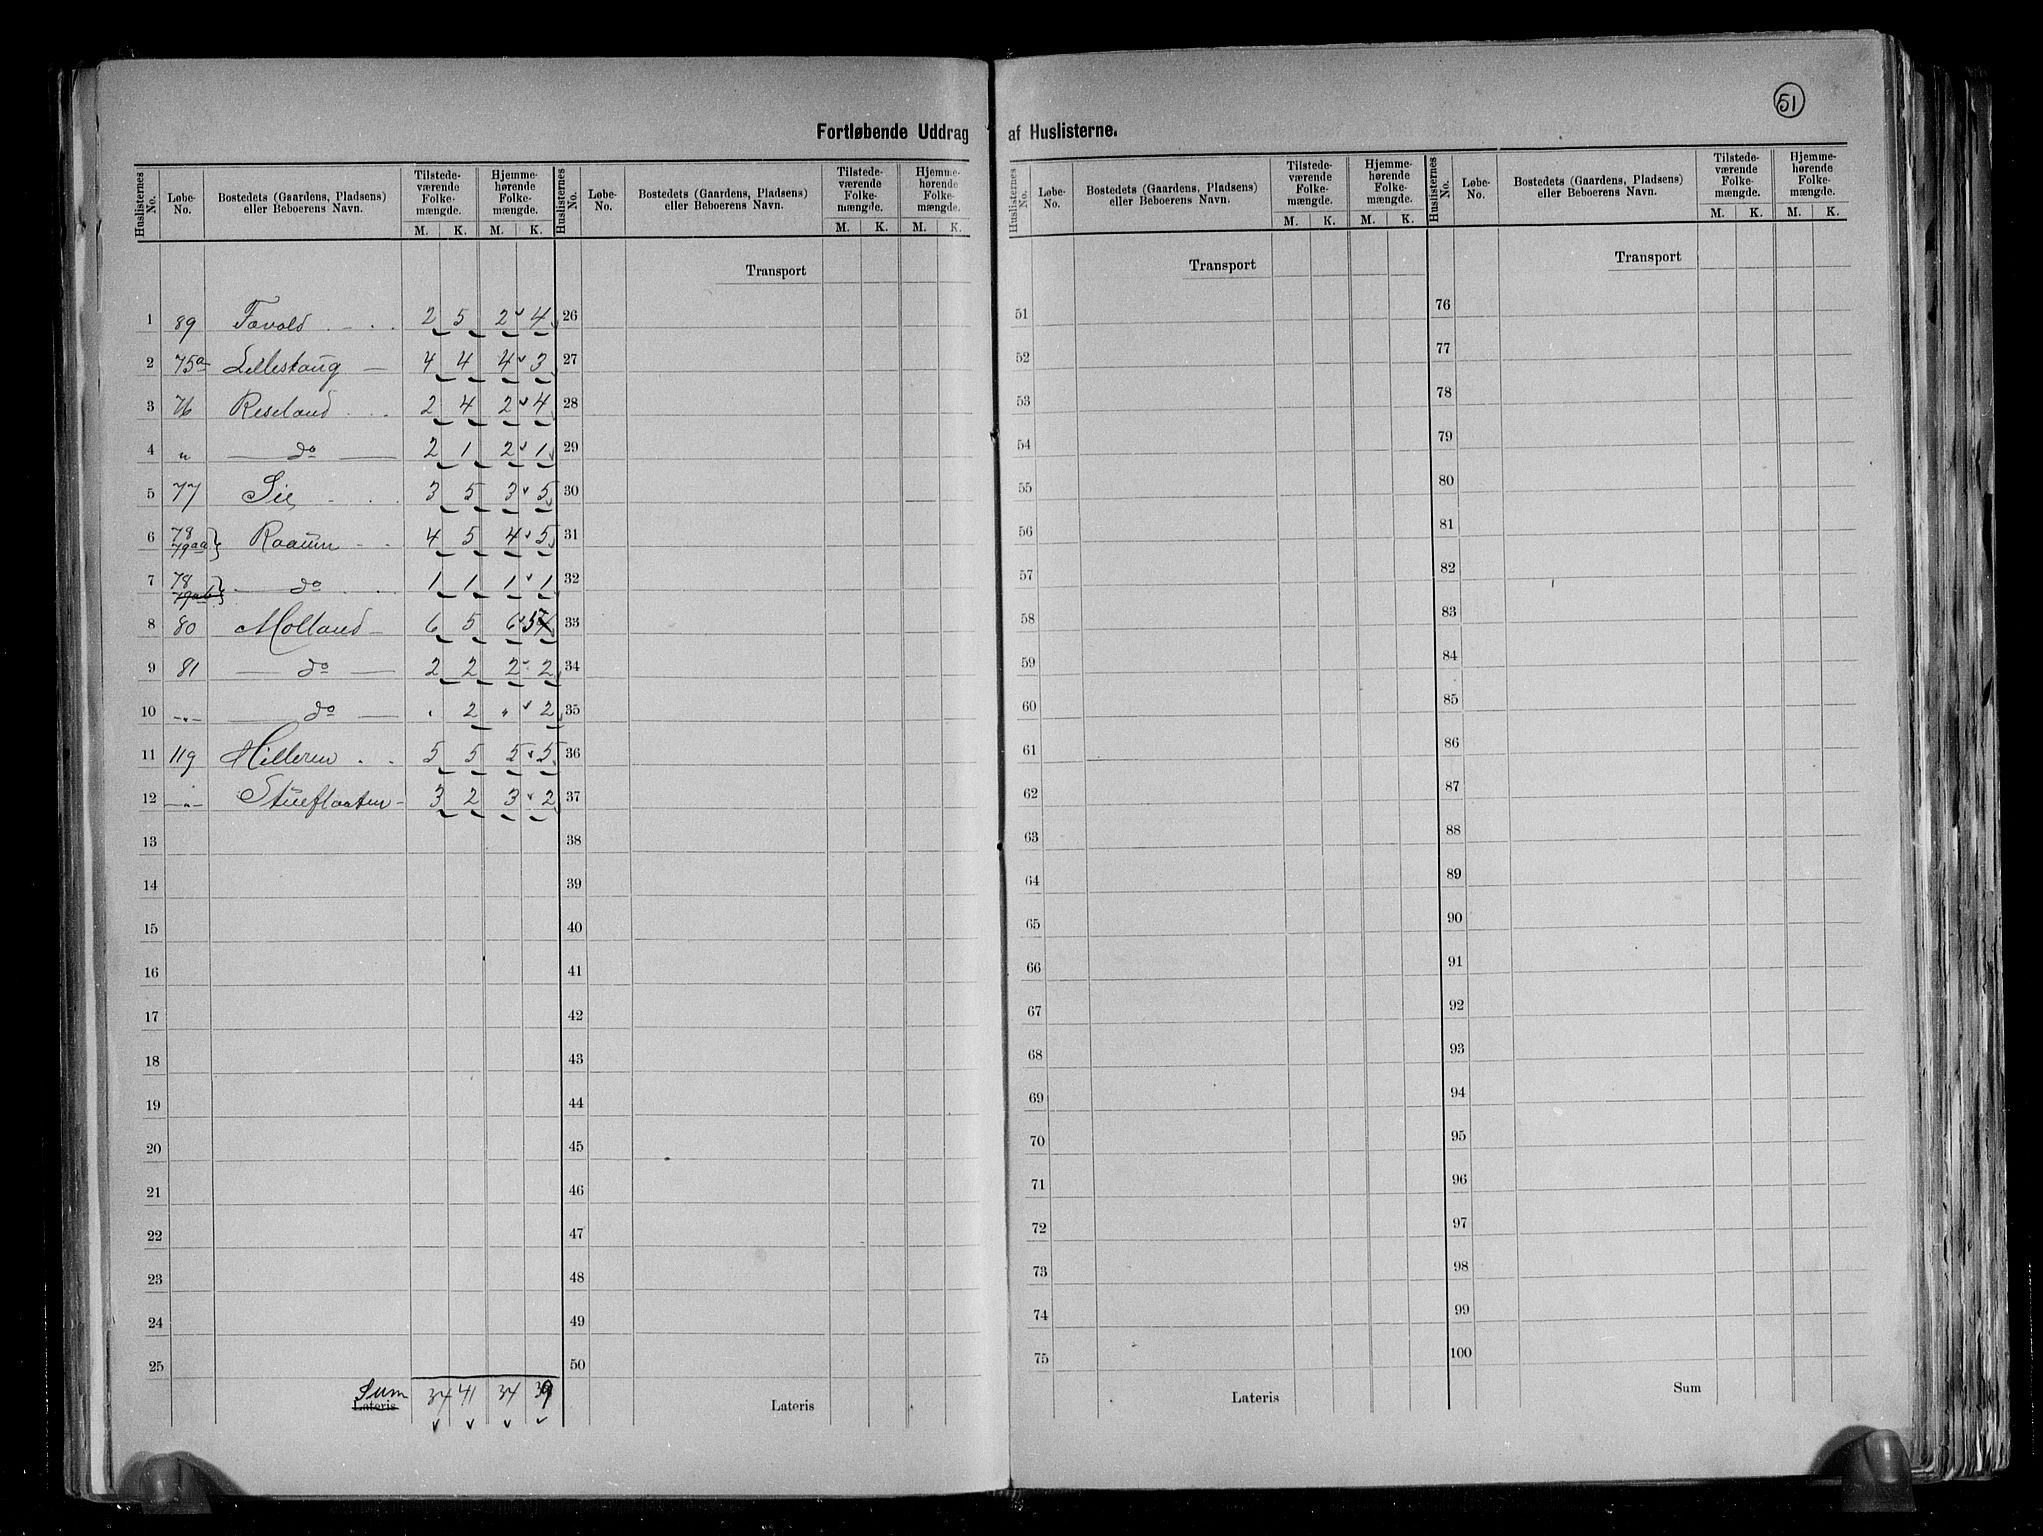 51
Fortløbende Uddrag af Huslisterne.
Huslisternes No. Løbe-No. Bostedets (Gaardens, Pladsens) eller Beboerens Navn. Tilstedeværende Folkemængde. M. K. Hjemmehørende Folkemængde. M. K.
Huslisternes No. Løbe-No. Bostedets (Gaardens, Pladsens) eller Beboerens Navn. Tilstedeværende Folkemængde. M. K. Hjemmehørende Folkemængde. M. K.
Transport
1 89 2 5 2 4
2 75a Lillestaug 4 4 4 3
3 76 Reseland 2 4 2 4
4 " do 2 1 2 1
5 77 3 5 3 5
6 78 79aa Raaum 4 5 4 5
7 78 do 1 1 1 1
8 80 Molland 6 5 6 5
9 81 do 2 2 2 2
10 " do . 2 " 2
11 119 Hilleren 5 5 5 5
12 " Stueflaaten 3 2 3 2
13
14
15
16
17
18
19
20
21
22
23
24
25
Sum 34 41 34 39
Lateris
26
27
28
29
30
31
32
33
34
35
36
37
38
39
40
41
42
43
44
45
46
47
48
49
50
Lateris
Huslisternes No. Løbe-No. Bostedets (Gaardens, Pladsens) eller Beboerens Navn. Tilstedeværende Folkemængde. M. K. Hjemmehørende Folkemængde. M. K.
Transport
51
52
53
54
55
56
57
58
59
60
61
62
63
64
65
66
67
68
69
70
71
72
73
74
75
Lateris
Huslisternes No. Løbe-No. Bostedets (Gaardens, Pladsens) eller Beboerens Navn. Tilstedeværende Folkemængde. M. K. Hjemmehørende Folkemængde. M. K.
Transport
76
77
78
79
80
81
82
83
84
85
86
87
88
89
90
91
92
93
94
95
96
97
98
99
100
Sum